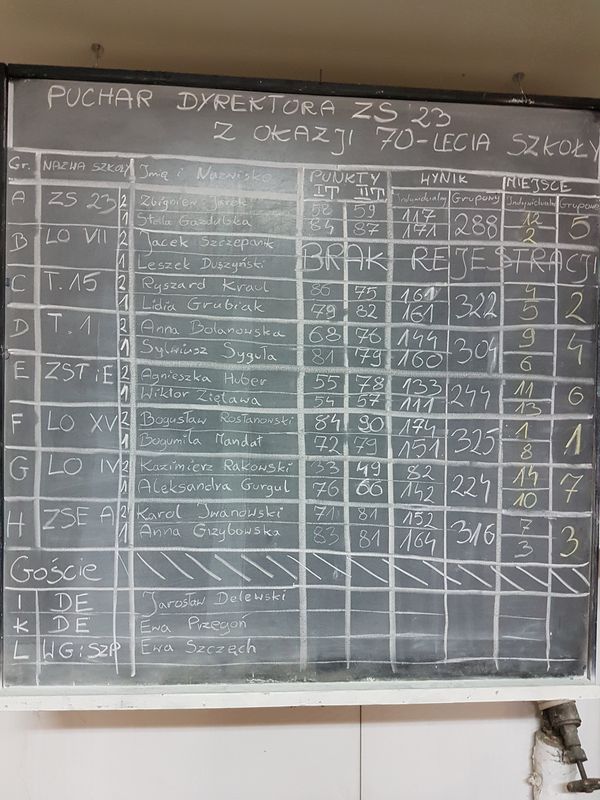 PUCHAR DYREKTORA ZS'23
Z OKAZJI 70-LECIA SZKOŁY
Gr. NAZWA SZKOŁY Imię i Nazwisko PUNKTY WYNIK MIEJSCE
I T II T Indywidualny Grupowy Indywidualne Grupowe
A ZS 23 2 Zbigniew Jarek 58 59 117 288 12 5
1 Stella Gazdulska 84 87 171 2
B LO VII 2 Jacek Szczepanik BRAK REJESTRACJI
1 Leszek Duszyński
C T.15 2 Ryszard Kraul 86 75 161 322 4 2
1 Lidia Grubiak 79 82 161 5
D T.1 2 Anna Bolanowska 68 76 144 304 9 4
1 Sylwiusz Syguła 81 79 160 6
E ZST iE 2 Agnieszka Huber 55 78 133 244 11 6
1 Wiktor Ziętawa 54 57 111 13
F LO XV 2 Bogusław Rostanowski 84 90 174 325 1 1
1 Bogumiła Mandat 72 79 151 8
G LO IV 2 Kazimierz Rakowski 33 49 82 224 14 7
1 Aleksandra Gurgul 76 66 142 10
H ZSE A 2 Karol Iwanowski 71 81 152 316 7 3
1 Anna Grzybowska 83 81 164 3
Goście
I DE Jarosław Delewski
K DE Ewa Przegoń
L WG i SZP Ewa Szczęch